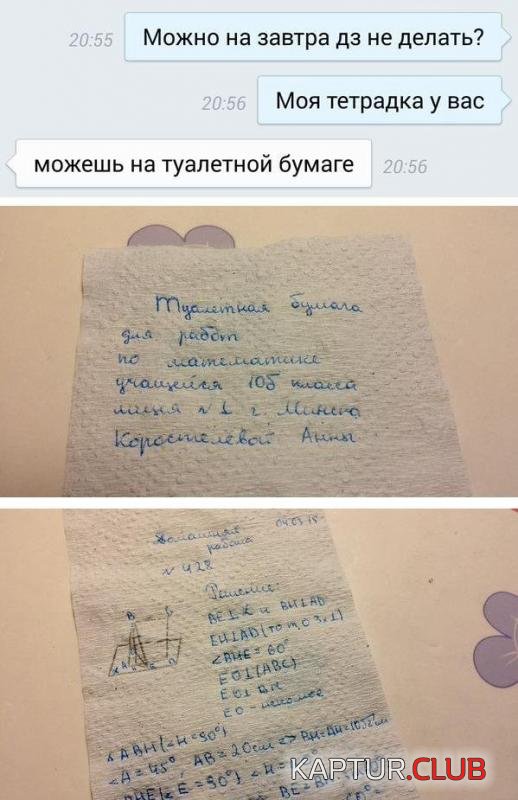 20:55
Можно на завтра дз не делать?
20:56
Моя тетрадка у вас
можешь на туалетной бумаге
20:56
Туалетная бумага
для работ
по математике
учащейся 10б класса
лицея №1 г. Минска
Коростелёвой Анны
04.03.15
Домашняя
работа
№ 428
Решение:
BE⊥α и BH⊥AD
EH⊥AD (то т. о 3х⊥)
∠BHE = 60°
EO⊥(ABC)
EO⊥BH
EO - искомое
∠A = 45° AB = 20см => BH=AH=10√2см
KAPTUR.CLUB